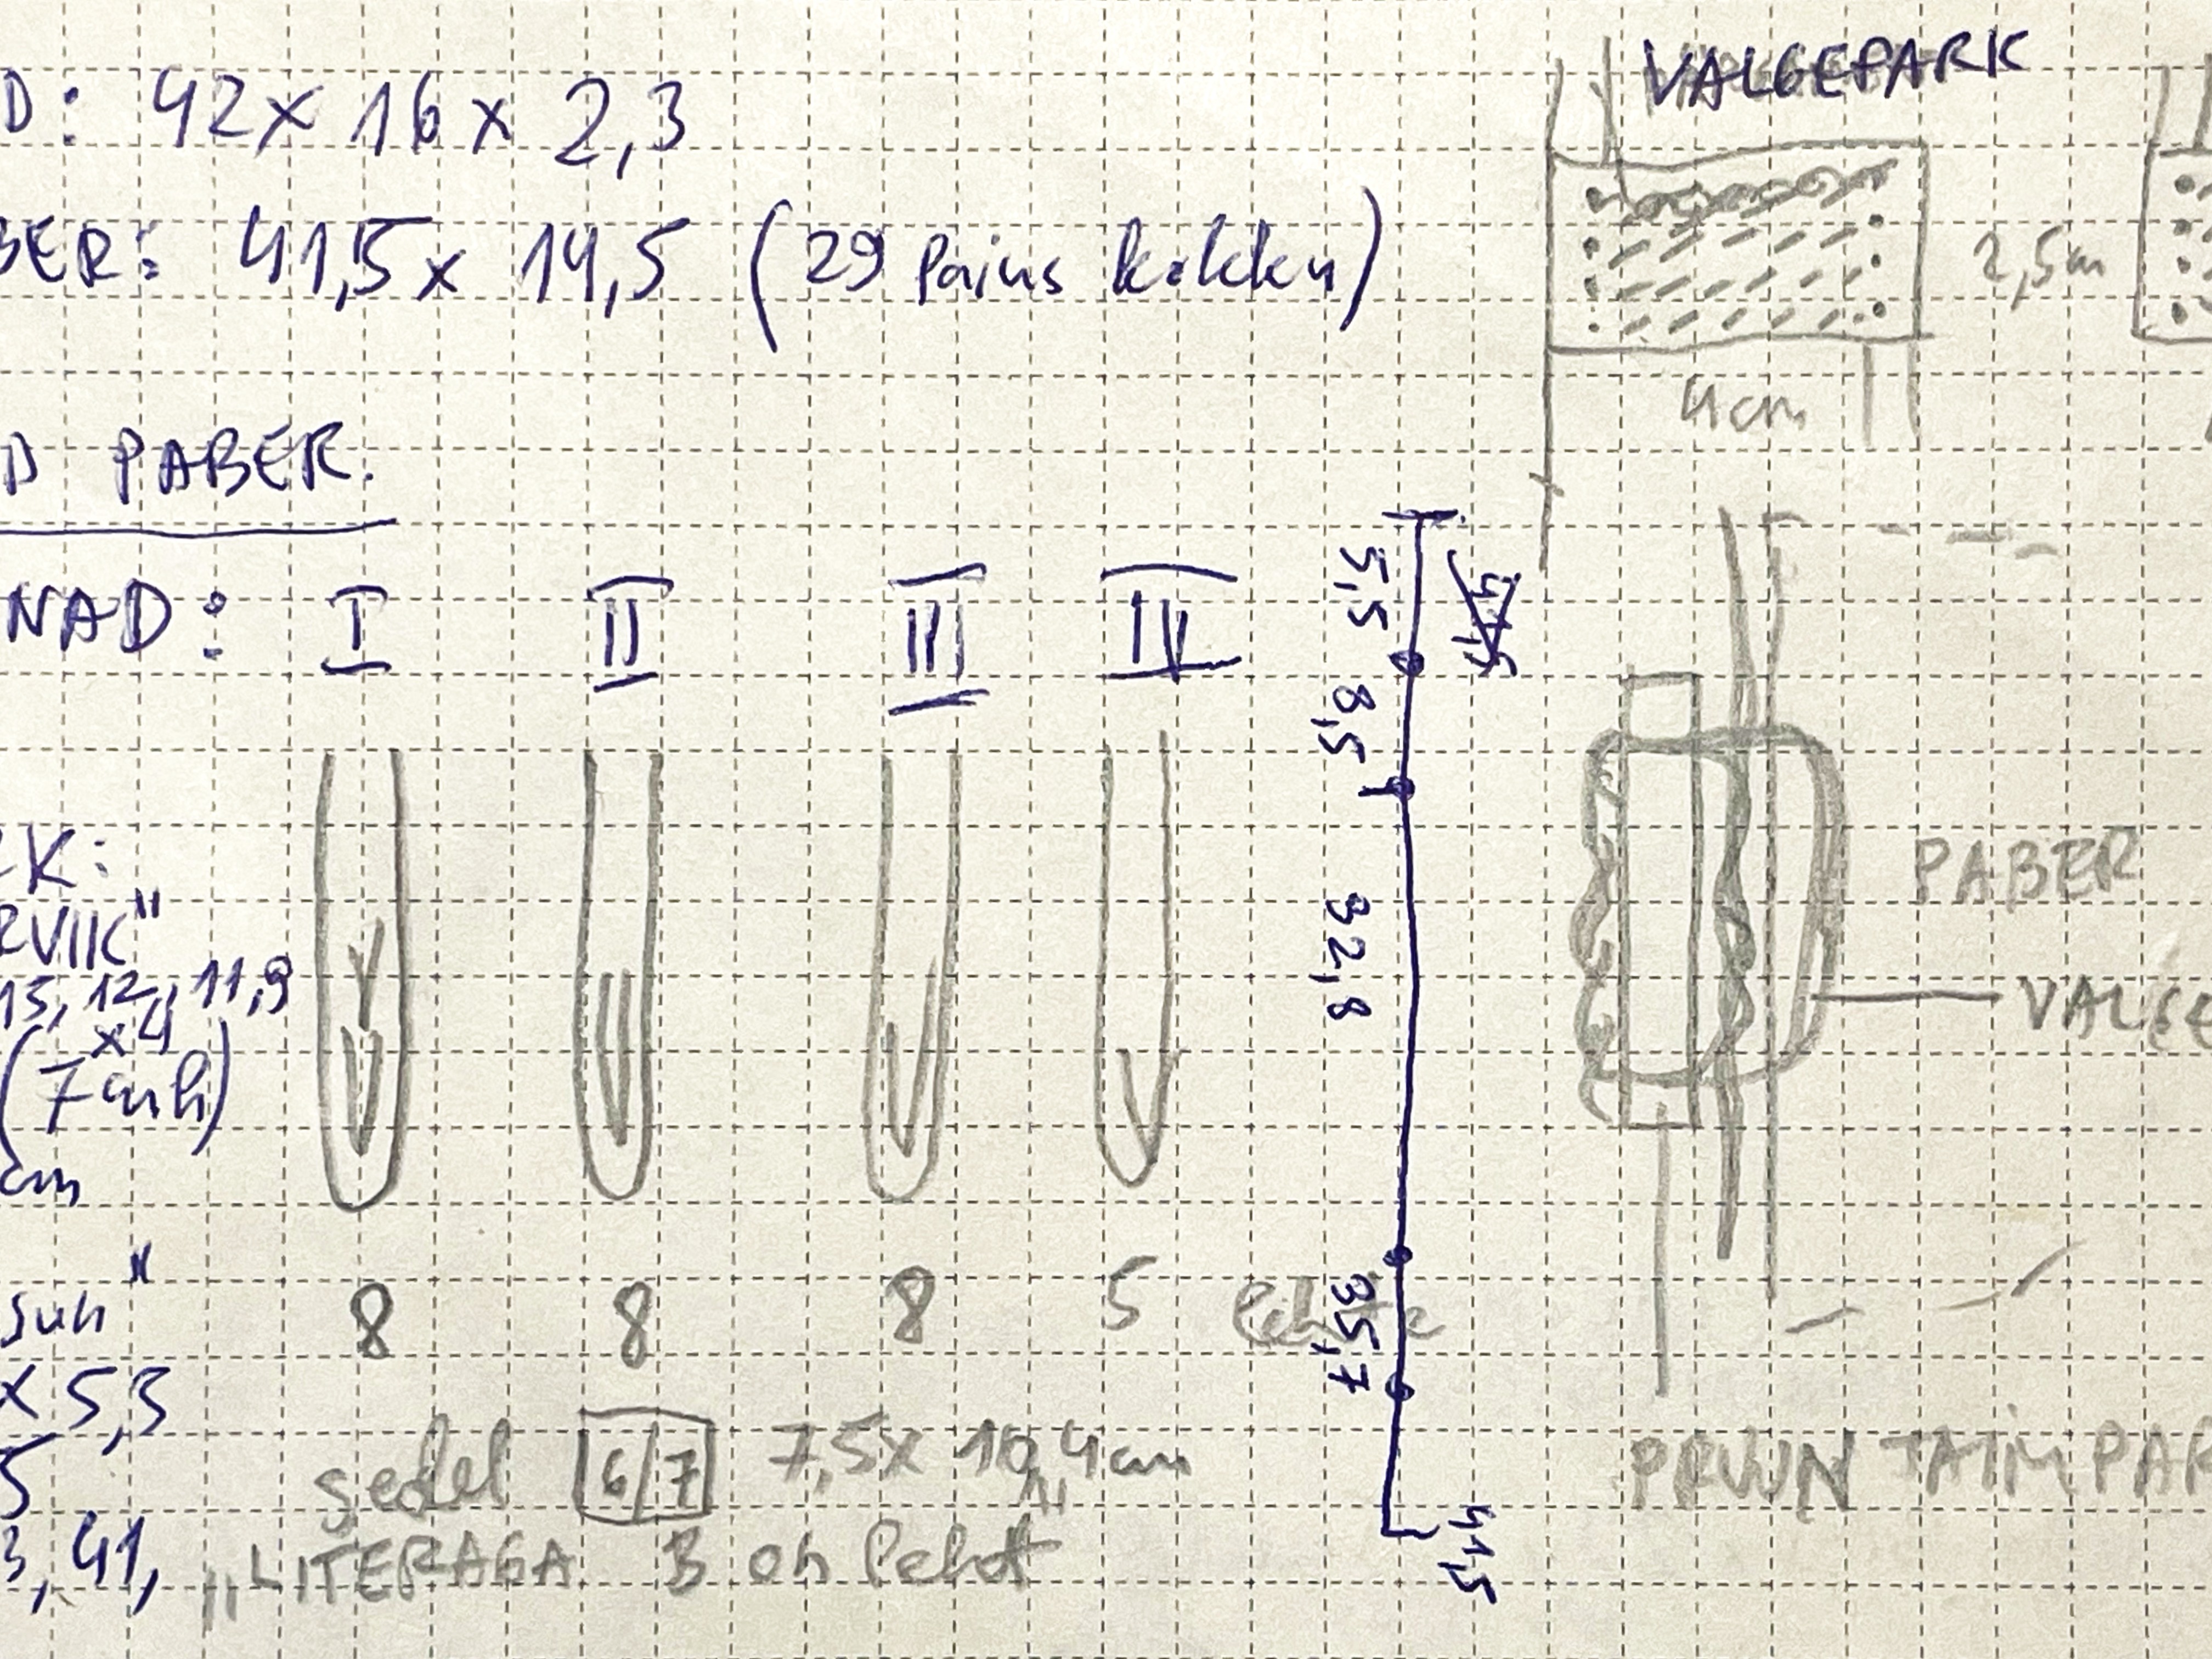 D: 42 x 16 x 2,3
BER: 41,5 x 14,5 (29 laius kokku)
D PABER.
NAD: I II III IV
K:
RVIIK"
13, 12, 11,9
x4
(7 auku)
cm
"
8 8 8 5
x 5,3
5
sedel 6/7 7,5 x 10,4 cm
3, 41,
„LITERAGA 3 on leht"
5,5
8,5
32,8
35,7
41,5
VALGEPARK
2,5 cm
4 cm
PABER
VALGE
PRUUN TAIMPAR